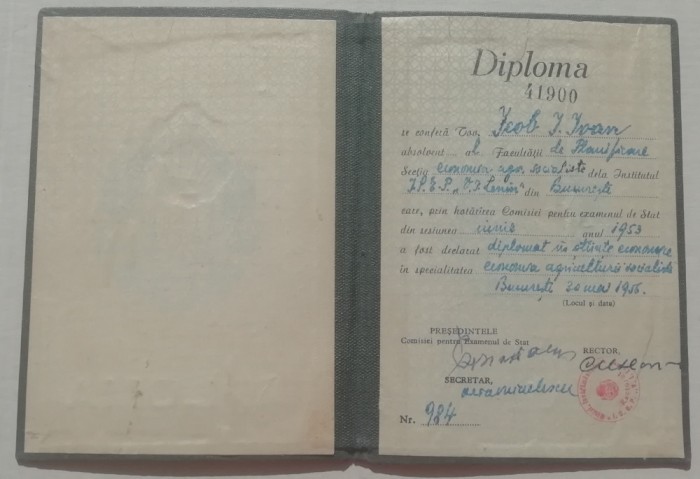 Diploma
41900
se conferă Tov. Icob I. Ivan
absolvent al Facultății de Planificare
Secția economia agr. socialiste dela Institutul
I.S.E.P. „V.I. Lenin" din București
care, prin hotărîrea Comisiei pentru examenul de Stat
din sesiunea iunie anul 1953
a fost declarat diplomat în științe economice
în specialitatea economia agriculturii socialiste
București 20 mai 1955.
(Locul și data)
PREȘEDINTELE
Comisiei pentru Examenul de Stat
RECTOR,
SECRETAR,
Nr. 984